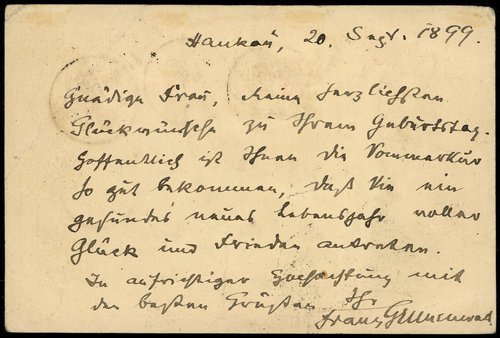 Hankau, 20. Sept. 1899.
Gnädige Frau, Meine herzlichsten
Glückwünsche zu Ihrem Geburtstag.
Hoffentlich ist Ihnen die Sommerkur
so gut bekommen, daß Sie ein
gesundes neues Lebensjahr voller
Glück und Frieden antreten.
In aufrichtiger Hochachtung mit
den besten Grüßen Ihr
Franz